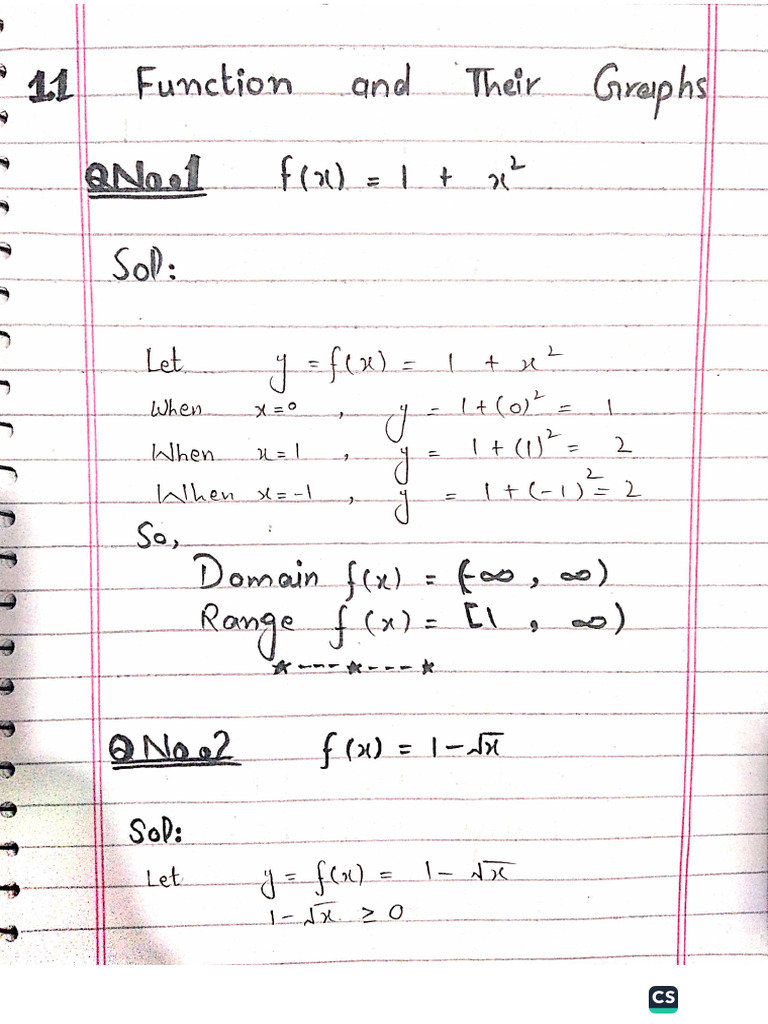 11 Function and Their Graphs
Q No.1 f(x) = 1 + x²
Sol:
Let y = f(x) = 1 + x²
When x=0 , y = 1+(0)² = 1
When x=1 , y = 1+(1)² = 2
When x=-1 , y = 1+(-1)² = 2
So,
Domain f(x) = (-∞ , ∞)
Range f(x) = [1 , ∞)
*---*---*
Q No.2 f(x) = 1-√x
Sol:
Let y = f(x) = 1-√x
1-√x ≥ 0
CS